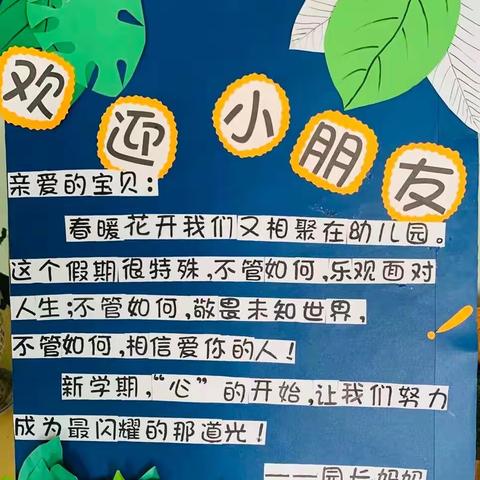 欢迎小朋友
亲爱的宝贝:
春暖花开我们又相聚在幼儿园。
这个假期很特殊,不管如何,乐观面对
人生;不管如何,敬畏未知世界,
不管如何,相信爱你的人!
新学期,“心”的开始,让我们努力
成为最闪耀的那道光!
——园长妈妈